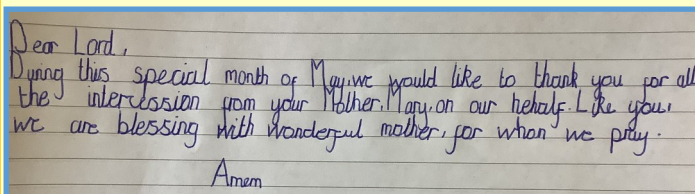 Dear Lord,
During this special month of May, we would like to thank you for all
the intercession from your Mother, Mary, on our hehalf. Like you,
we are blessing with wonderful mother, for whon we pray.
Amem